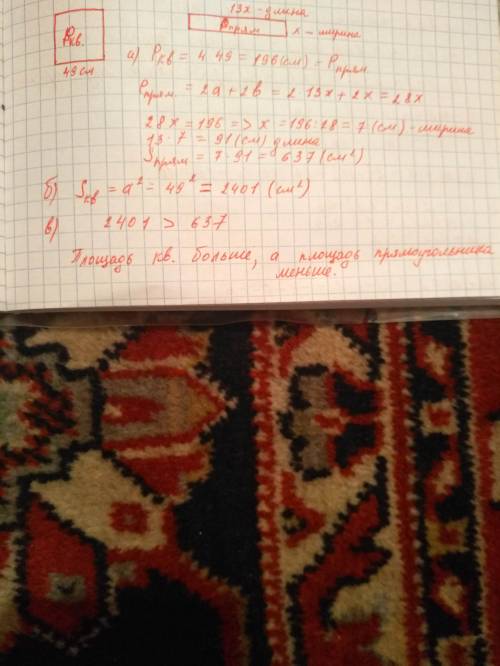 13x - длина
Pкв.
Pпрям
x - ширина
49см
а) Pкв = 4·49 = 196(см) - Pпрям
Pпрям = 2a + 2b = 2·13x + 2x = 28x
28x = 196 => x = 196:28 = 7(см) - ширина
13·7 = 91(см) длина
Sпрям = 7·91 = 637(см²)
б) Sкв = a² = 49² = 2401 (см²)
в) 2401 > 637
Площадь кв. больше, а площадь прямоугольника
меньше.